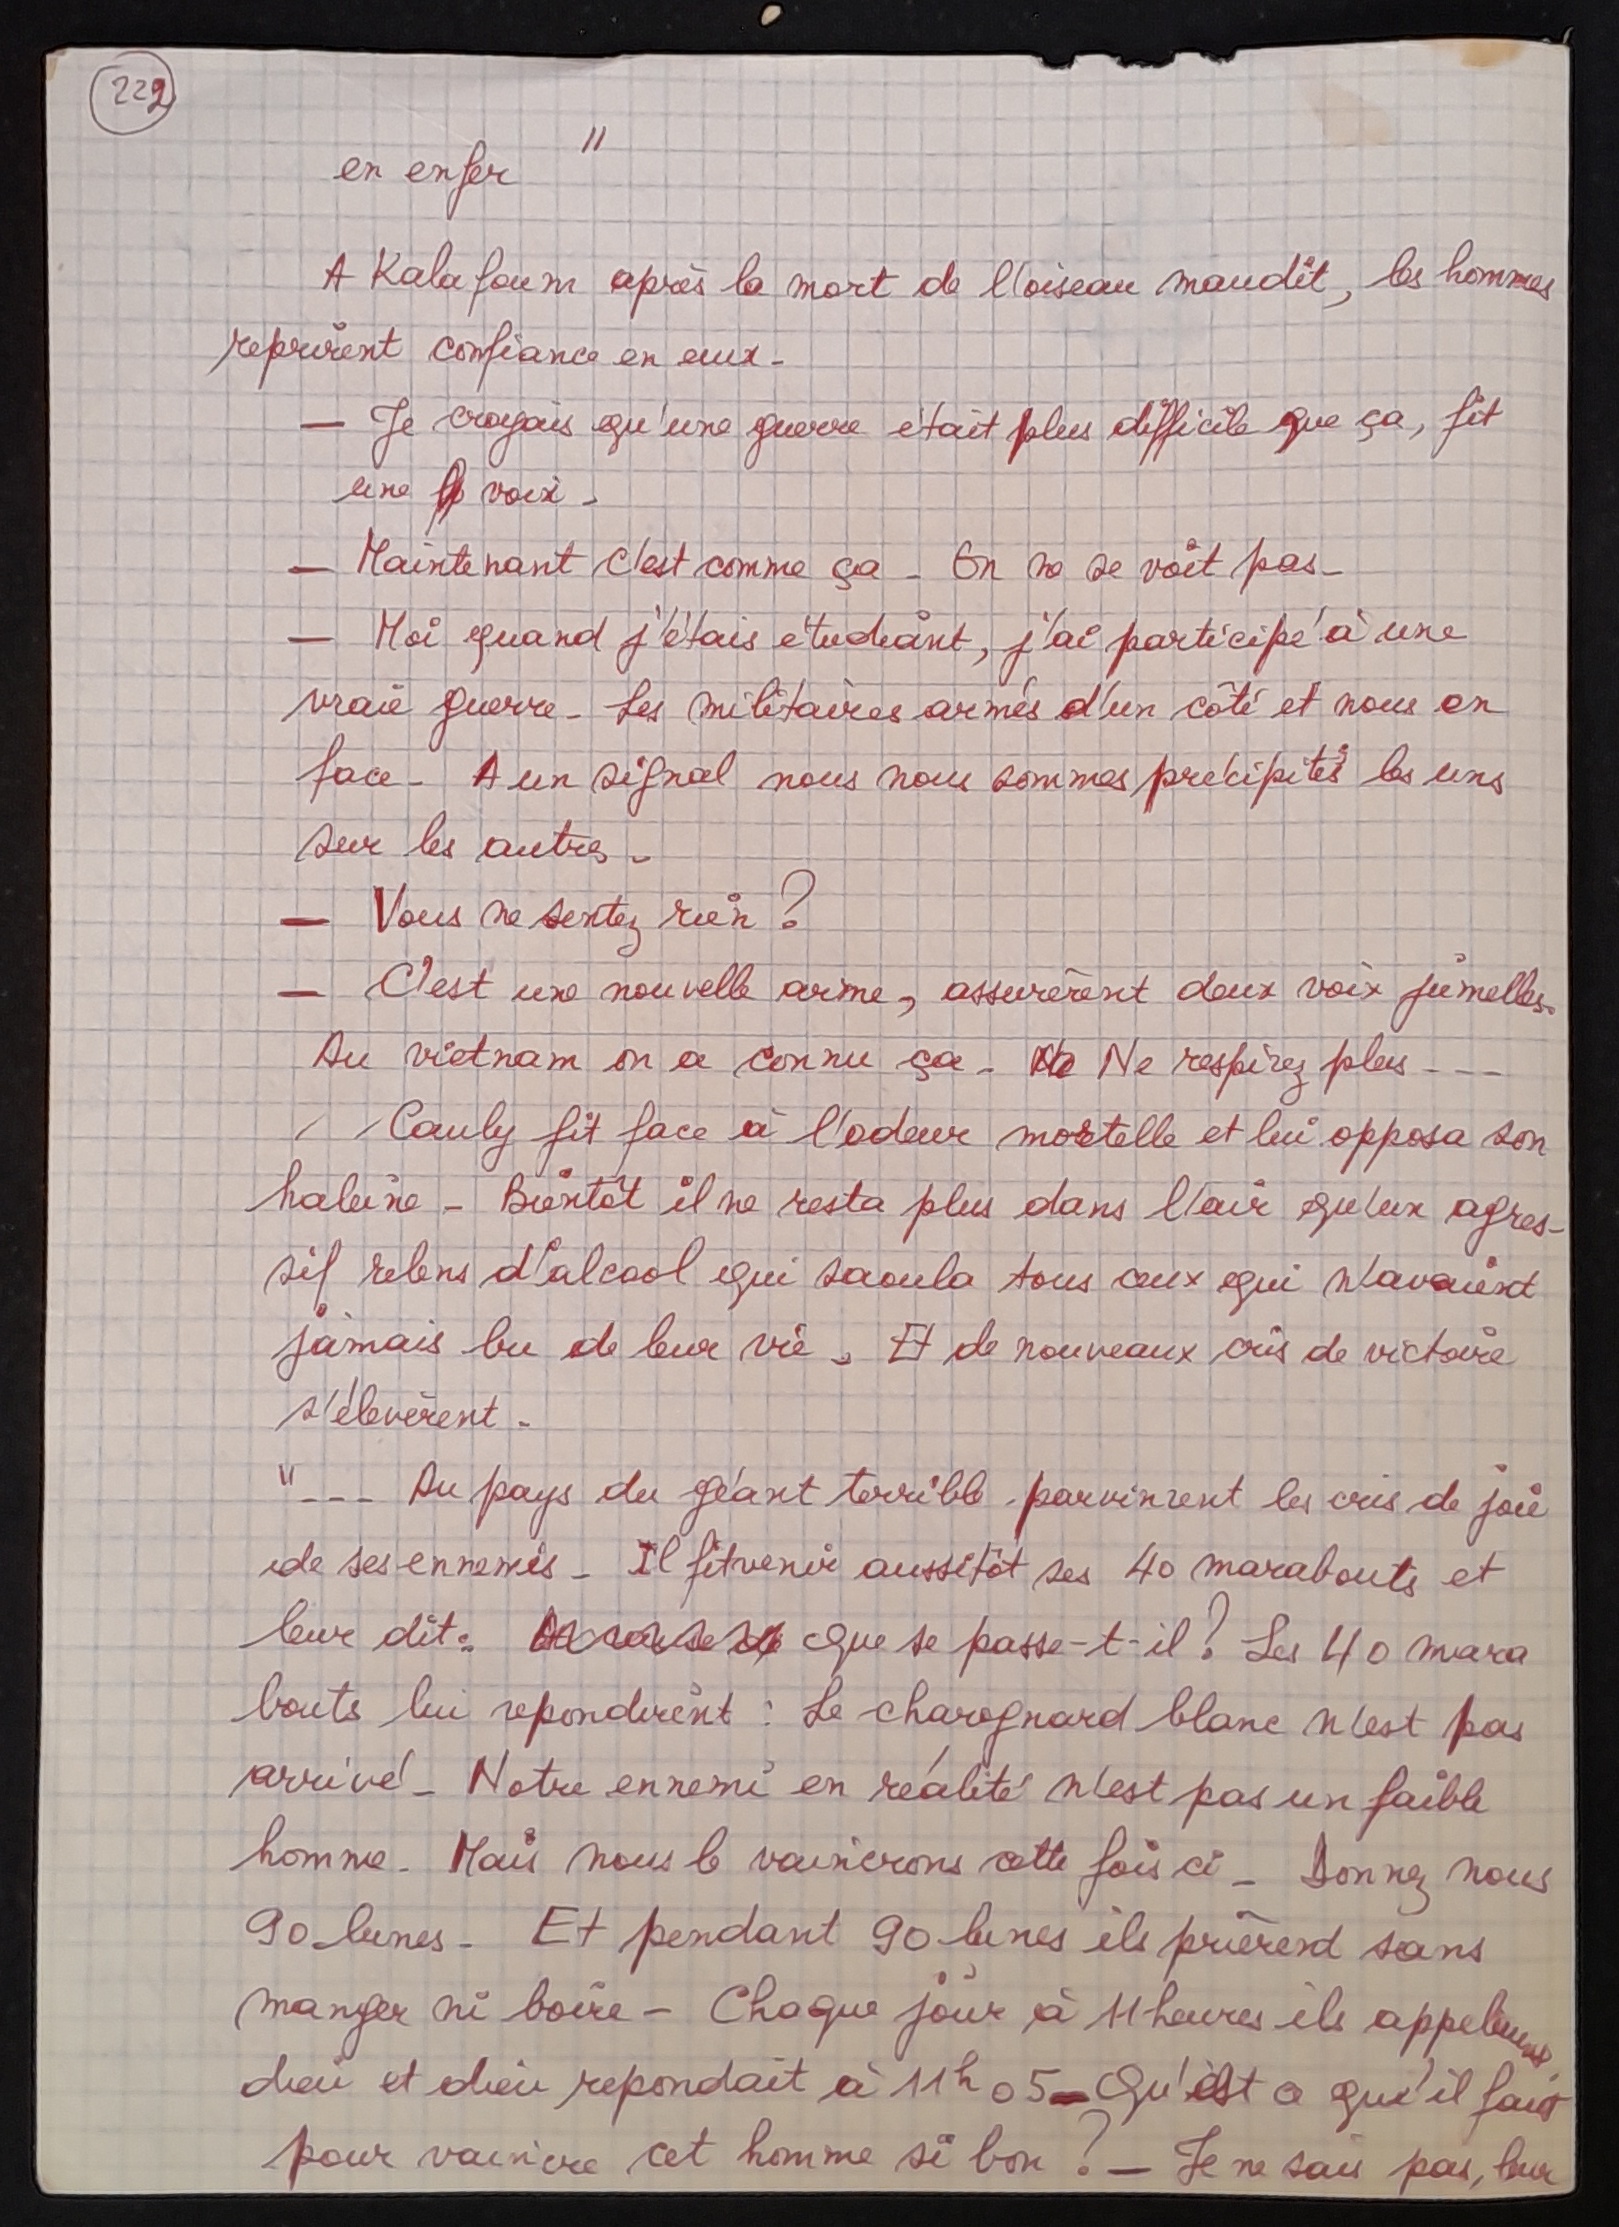 222
en enfer "
A Kalafoum après la mort de l'oiseau maudit, les hommes
reprirent confiance en eux -
— Je croyais qu'une guerre était plus difficile que ça, fit
une voix -
— Maintenant c'est comme ça - On ne se voit pas -
— Moi quand j'étais étudiant, j'ai participé à une
vraie guerre - Les militaires armés d'un côté et nous en
face - A un signal nous nous sommes précipités les uns
sur les autres -
— Vous ne sentez rien ?
— C'est une nouvelle arme, assurèrent deux voix jumelles.
Au vietnam on a connu ça - Ne respirez plus - - -
Cauly fit face à l'odeur mortelle et lui opposa son
haleine - Bientôt il ne resta plus dans l'air qu'un agres-
sif relens d'alcool qui saoula tous ceux qui n'avaient
jamais bu de leur vie. Et de nouveaux cris de victoire
s'élevèrent -
" - - - Au pays du géant terrible parvinrent les cris de joie
de ses ennemis - Il fit venir aussitôt ses 40 marabouts et
leur dit : que se passe-t-il ? Les 40 mara
bouts lui repondirent : Le charognard blanc n'est pas
arrivé - Notre ennemi en réalité n'est pas un faible
homme - Mais nous le vaincrons cette fois ci - Donnez nous
90 lunes - Et pendant 90 lunes ils prièrent sans
manger ni boire - Chaque jour à 11 heures ils appelaient
dieu et dieu repondait à 11h05 - Qu'est ce qu'il faut
pour vaincre cet homme si bon ? — Je ne sais pas, leur